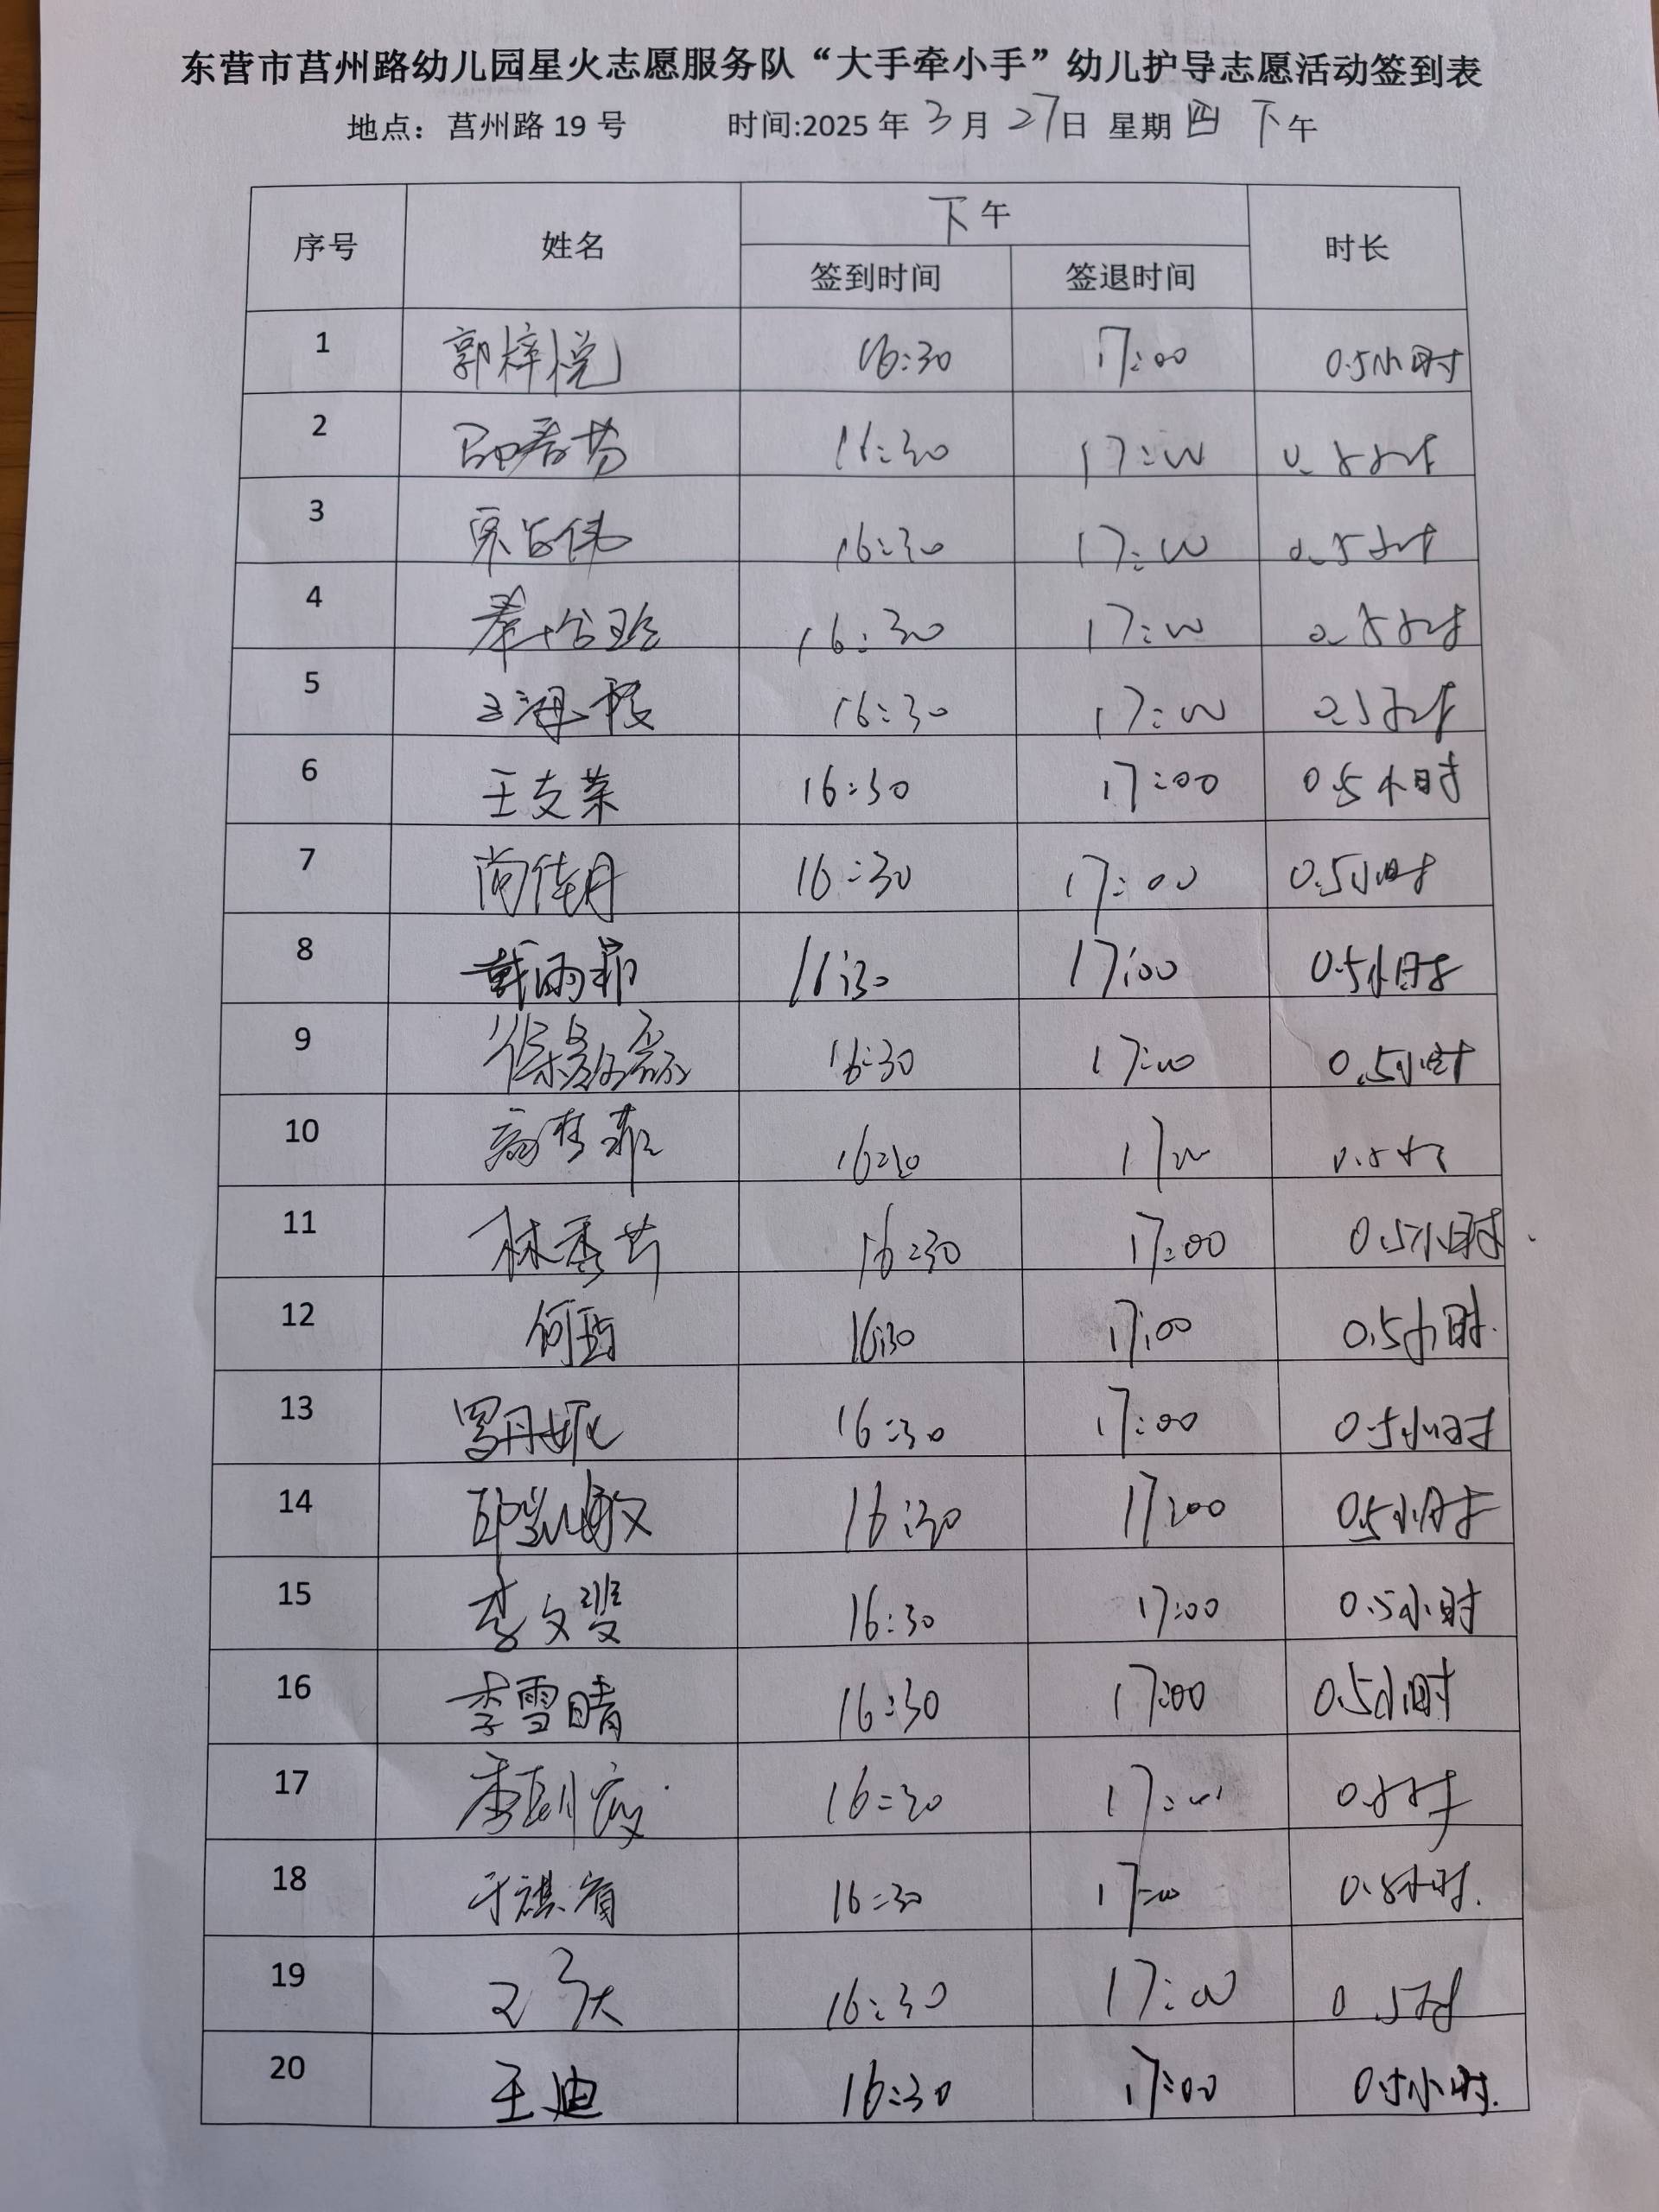 东营市莒州路幼儿园星火志愿服务队“大手牵小手”幼儿护导志愿活动签到表
地点：莒州路 19 号 时间:2025 年 3 月 27 日 星期 四 下午
序号 姓名 下午 时长
签到时间 签退时间
1 郭梓悦 16:30 17:00 0.5小时
2 16:30 17:00 0.5小时
3 16:30 17:00 0.5小时
4 16:30 17:00 0.5小时
5 16:30 17:00 0.5小时
6 王支荣 16:30 17:00 0.5小时
7 尚佳月 16:30 17:00 0.5小时
8 戴雨菲 16:30 17:00 0.5小时
9 16:30 17:00 0.5小时
10 16:30 17:00
11 林秀芳 16:30 17:00 0.5小时
12 16:30 17:00 0.5小时
13 罗丹妮 16:30 17:00 0.5小时
14 邱凯敏 16:30 17:00 0.5小时
15 李文斐 16:30 17:00 0.5小时
16 李雪晴 16:30 17:00 0.5小时
17 16:30 17:00
18 16:30 17:00 0.5小时.
19 16:30 17:00
20 王迪 16:30 17:00 0.5小时.